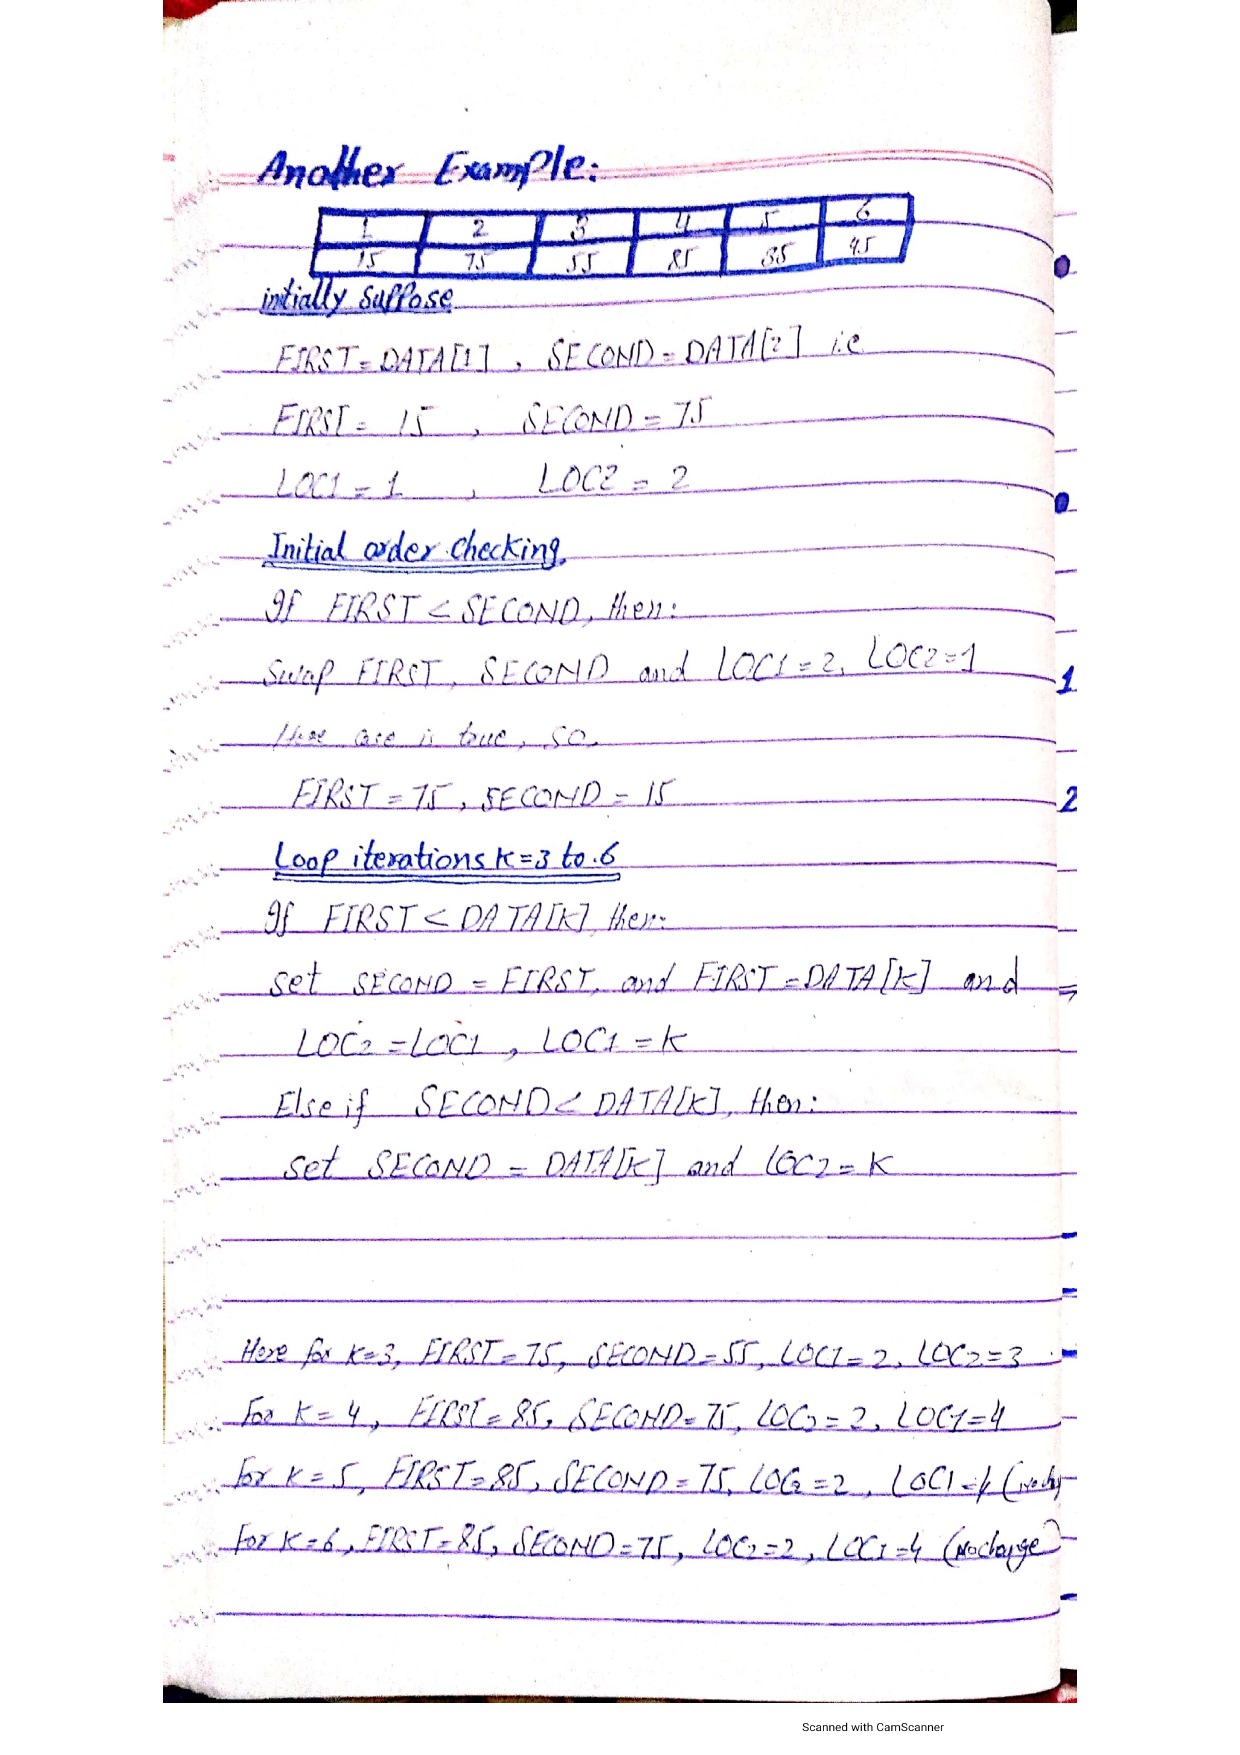 Another Example:
1 2 3 4 5 6
15 75 55 85 35 45
initially suppose
FIRST = DATA[1] , SECOND = DATA[2] i.e
FIRST = 15 , SECOND = 75
LOC1 = 1 , LOC2 = 2
Initial order checking.
If FIRST < SECOND, then:
Swap FIRST, SECOND and LOC1 = 2, LOC2 = 1
1
is true, so,
FIRST = 75, SECOND = 15
2
Loop iterations K = 3 to 6
If FIRST < DATA[K] then:
set SECOND = FIRST, and FIRST = DATA[K] and
LOC2 = LOC1 , LOC1 = K
Else if SECOND < DATA[K], then:
set SECOND = DATA[K] and LOC2 = K
Here for K=3, FIRST = 75, SECOND = 55, LOC1 = 2, LOC2 = 3
For K = 4, FIRST = 85, SECOND = 75, LOC2 = 2, LOC1 = 4
For K = 5, FIRST = 85, SECOND = 75, LOC2 = 2 , LOC1 = 4
For K=6, FIRST = 85, SECOND = 75, LOC2 = 2, LOC1 = 4 (No change)
Scanned with CamScanner